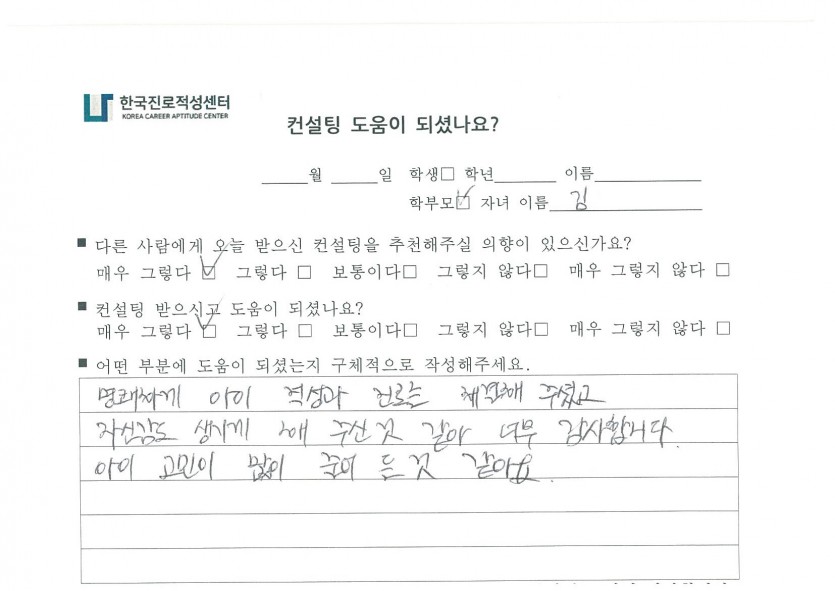 한국진로적성센터
KOREA CAREER APTITUDE CENTER
컨설팅 도움이 되셨나요?
____월 ____일 학생□ 학년______ 이름__________
학부모☑ 자녀 이름 김
■ 다른 사람에게 오늘 받으신 컨설팅을 추천해주실 의향이 있으신가요?
매우 그렇다 ☑ 그렇다 □ 보통이다□ 그렇지 않다□ 매우 그렇지 않다 □
■ 컨설팅 받으시고 도움이 되셨나요?
매우 그렇다 ☑ 그렇다 □ 보통이다□ 그렇지 않다□ 매우 그렇지 않다 □
■ 어떤 부분에 도움이 되셨는지 구체적으로 작성해주세요.
명쾌하게 아이 적성과 진로를 해결해 주셨고
자신감도 생기게 해 주신 것 같아 너무 감사합니다.
아이 고민이 많이 줄어 든 것 같아요.